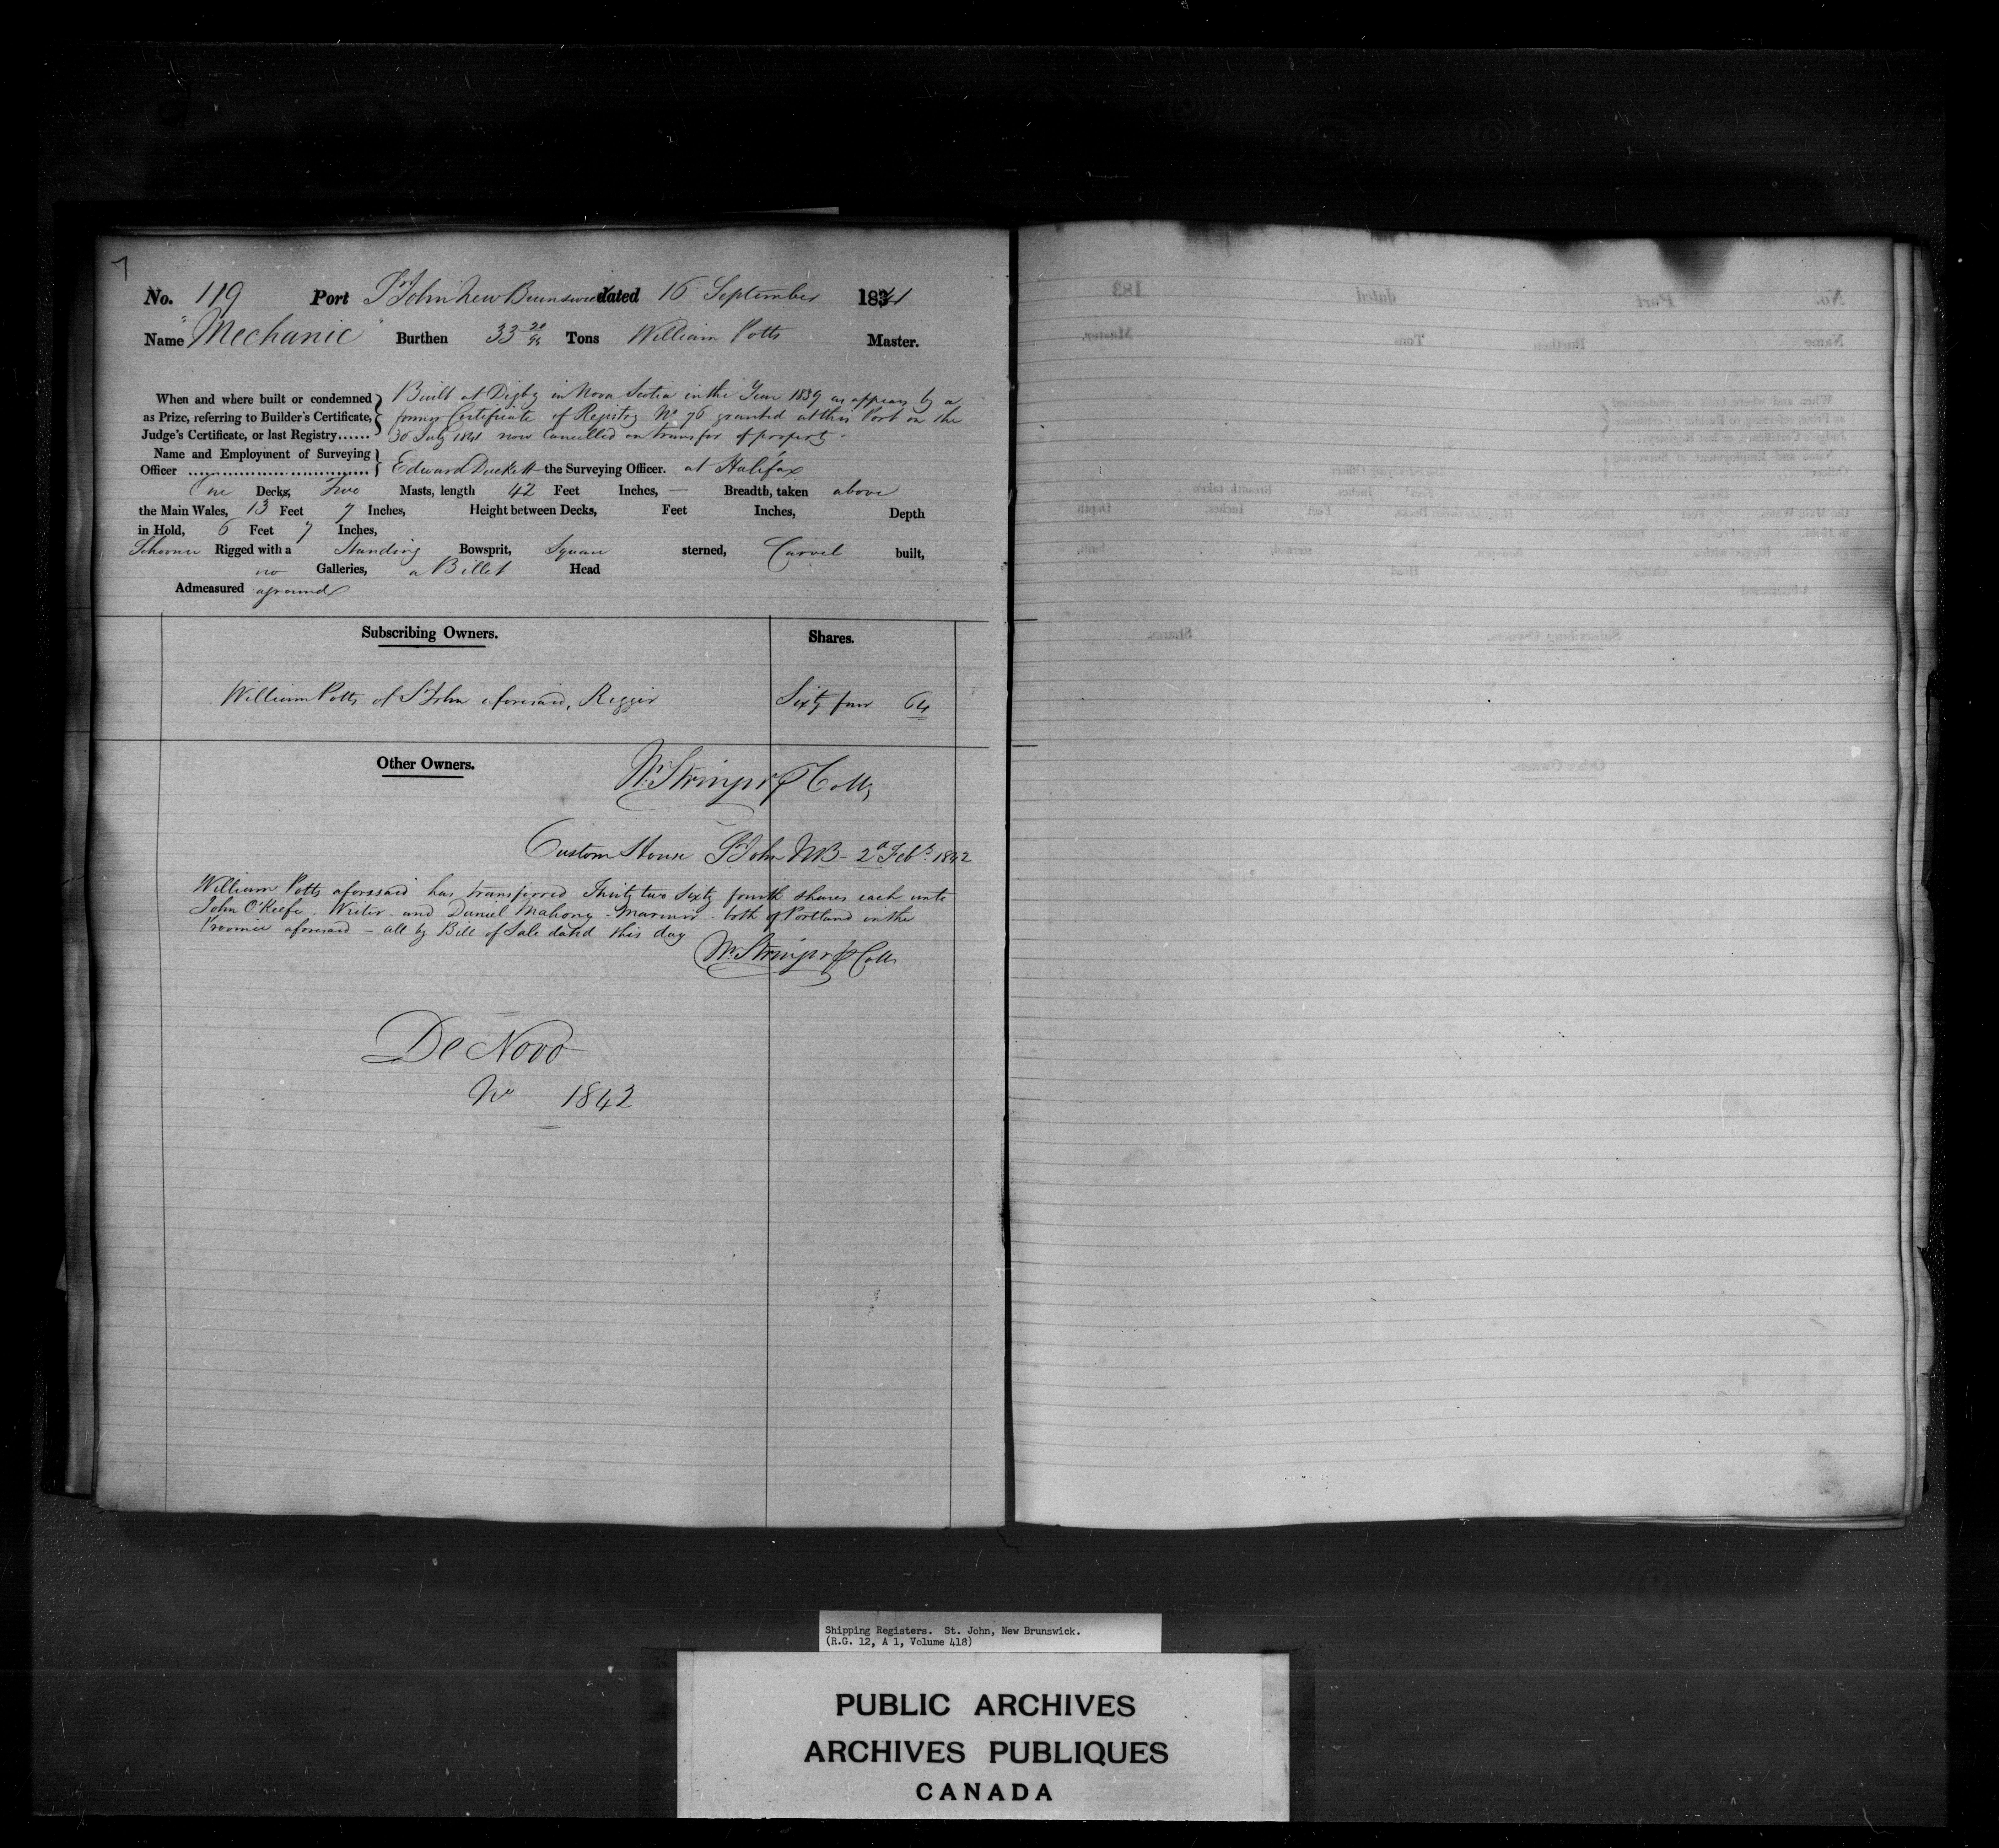 7
No. 119 Port St John New Brunswick dated 16 September 1841
Name "Mechanic" Burthen 33 20/94 Tons William Potts Master.
When and where built or condemned as Prize, referring to Builder's Certificate, Judge's Certificate, or last Registry......
Built at Digby in Nova Scotia in the Year 1839 as appears by a
former Certificate of Registry No 96 granted at this Port on the
30 July 1841 now Cancelled on transfer of property.
Name and Employment of Surveying
Officer .............................. Edward Duckett the Surveying Officer. at Halifax
One Decks, Two Masts, length 42 Feet Inches, — Breadth, taken above
the Main Wales, 13 Feet 7 Inches, Height between Decks, Feet Inches, Depth
in Hold, 6 Feet 7 Inches,
Schooner Rigged with a Standing Bowsprit, Square sterned, Carvel built,
no Galleries, a Billet Head
Admeasured aground
Subscribing Owners. Shares.
William Potts of St John aforesaid, Rigger Sixty four 64
Other Owners.
Custom House St John NB - 2d Feby 1842
William Potts aforesaid has transferred Thirty two Sixty fourth shares each unto
John O'Keefe, Writer - and Daniel Mahony - Mariner - both of Portland in the
Province aforesaid - all by Bill of Sale dated this day
De Novo
No 1842
Shipping Registers. St. John, New Brunswick.
(R.G. 12, A 1, Volume 418)
PUBLIC ARCHIVES
ARCHIVES PUBLIQUES
CANADA